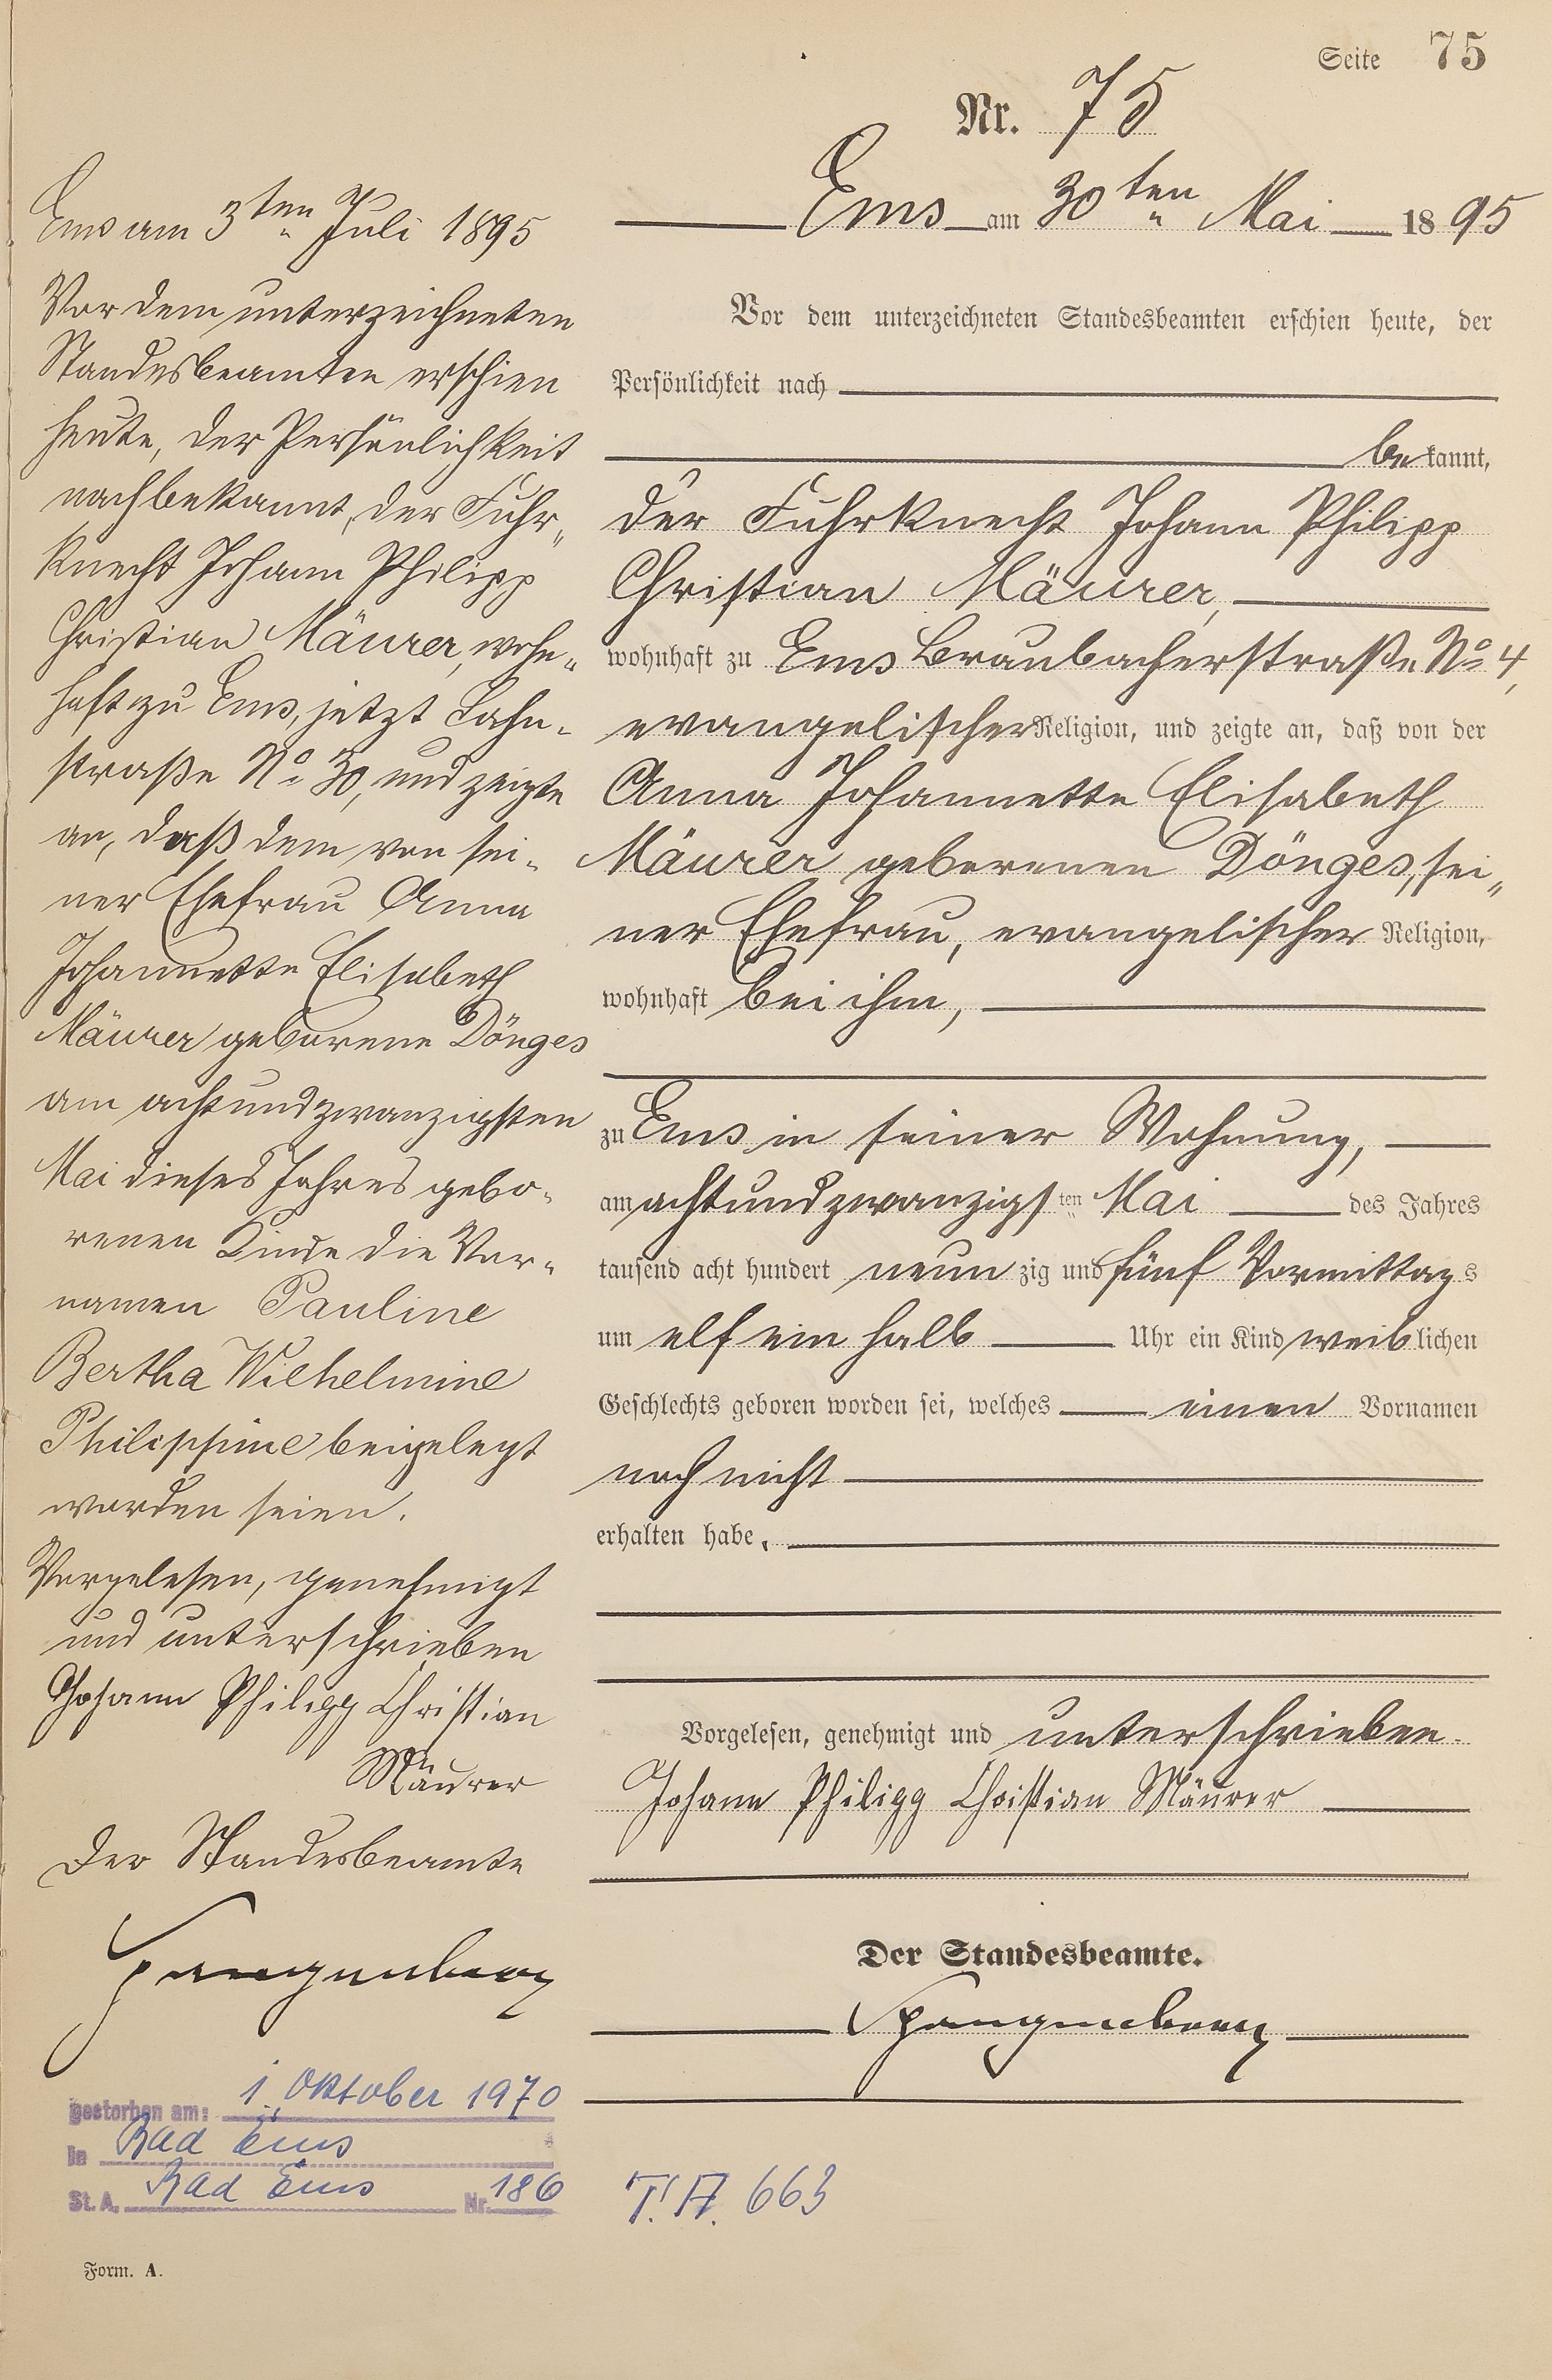 Seite 75
Nr. 75
Ems am 30ten Mai 1895
Vor dem unterzeichneten Standesbeamten erschien heute, der
Persönlichkeit nach
bekannt,
der Fuhrknecht Johann Philipp
Christian Mäurer,
wohnhaft zu Ems Braubacherstraße No 4,
evangelischer Religion, und zeigte an, daß von der
Anna Johannette Elisabeth
Mäurer geborenen Dönges, sei„
ner Ehefrau, evangelischer Religion,
wohnhaft bei ihm,
zu Ems in seiner Wohnung,
am achtundzwanzigsten Mai des Jahres
tausend acht hundert neunzig und fünf Vormittags
um elf ein halb Uhr ein Kind weiblichen
Geschlechts geboren worden sei, welches einen Vornamen
noch nicht
erhalten habe.
Vorgelesen, genehmigt und unterschrieben.
Johann Philipp Christian Mäurer
Der Standesbeamte.
Spangenberg
Ems am 3ten Juli 1895
Vor dem unterzeichneten
Standesbeamten erschien
heute, der Persönlichkeit
nach bekannt, der Fuhr„
knecht Johann Philipp
Christian Mäurer, wohn„
haft zu Ems, jetzt Lahn„
straße No 30, und zeigte
an, daß dem von sei„
ner Ehefrau Anna
Johannette Elisabeth
Mäurer geborene Dönges
am achtundzwanzigsten
Mai dieses Jahres gebo„
renen Kinde die Vor„
namen Pauline
Bertha Wilhelmine
Philippine beigelegt
worden seien.
Vorgelesen, genehmigt
und unterschrieben
Johann Philipp Christian
Mäurer
Der Standesbeamte
Spangenberg
gestorben am: 1. Oktober 1970
in Bad Ems
St. A. Bad Ems Nr. 186
T. A. 663
Form. A.